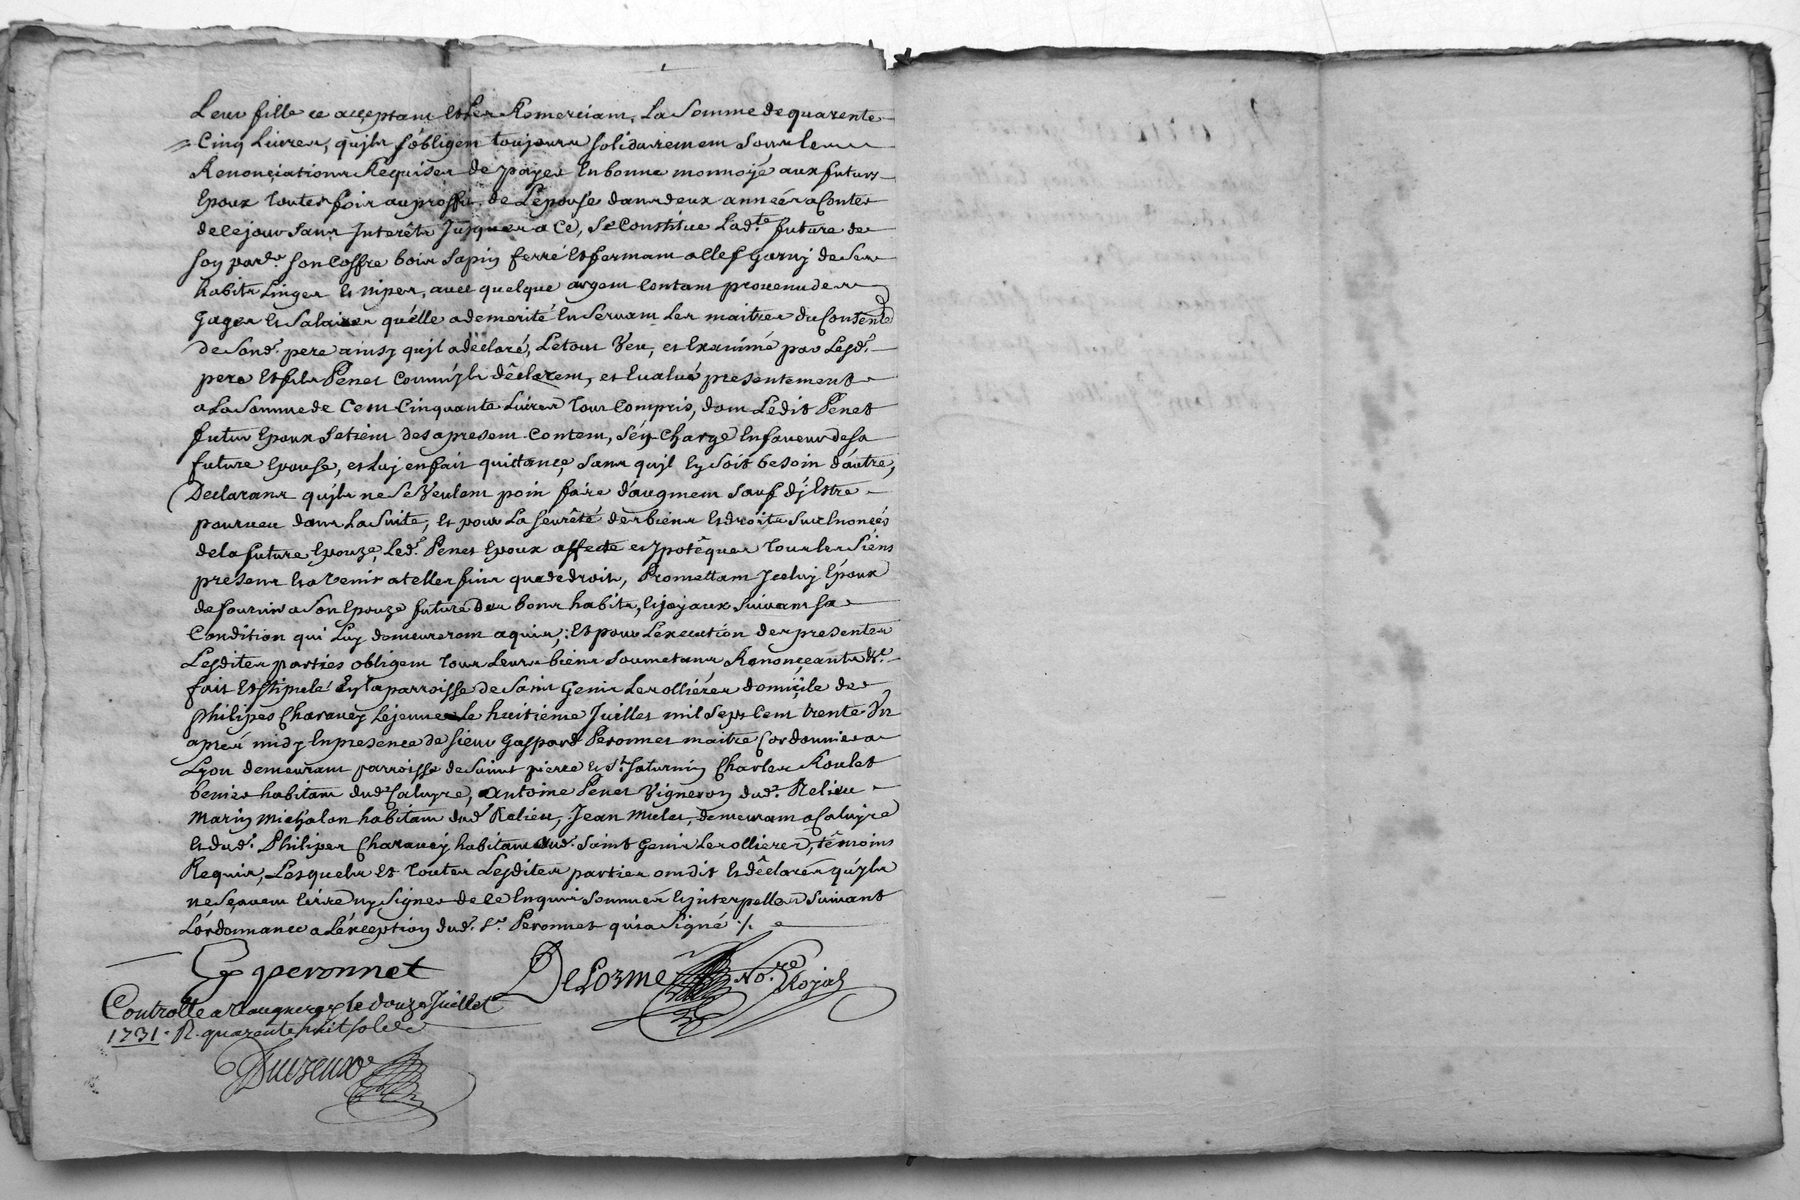 Leur fille ce acceptant et les Remerciant, La Somme de quarente
Cinq Livres, qu'jls s'obligent toujours solidairement sous les
Renonciations Requises de payer En bonne monnoye aux futurs
Epoux toutes fois au proffit de L'epouse dans deux années a Conter
de ce jour sans Jnterêts Jusques a Ce, Se Constitue Lad.te future de
son par.er son Coffre bois Sapin ferré et fermant a Clef Garnj de Ses
habits Linges et nipes, avec quelque argent Contant provenu des
Gages et Salaires qu'elle a demerité En Servant Les maitres du Consent.t
de Sond.t pere ainsy qu'jl a declaré, Le tout Veu, et Examiné par Lesd.ts
pere et fils Penet Comm'jls dêclarent, et Evalué presentement
a La Somme de Cent Cinquante Livres tout Compris, dont Ledit Penet
futur Epoux se tient des a present Content, s'en Charge En faveur de sa
future Epouse, et Luj en fait quittance, Sans qu'jl En Soit besoin d'autre,
Declarans qu'jls ne Se Veulent poin faire d'augment sauf d'j Estre
pourveu dans La Suite, et pour La seurêté des biens et droits Sus Enoncés
de la future Epouze, Led.t Penet Epoux affecte et ypotêque tous les Siens
presens et a Venir a telles fins que de droit, Promettant Jceluj Epoux
de fournir a Son Epouze future des bons habits, et joyaux Suivant sa
Condition qui Luy demeureront aquis; Et pour L'execution des presentes
Lesdites parties obligent tous Leurs biens Soumetans Renonceants &c.
fait Et stipulé En la parroisse de Saint Genis Les ollieres domicile de
Philipes Charavey Le jeune Le huitieme Juillet mil Sept Cent trente Un
apres midy En presence de sieur Gaspard Peronnet maitre Cordonnier a
Lyon demeurant parroisse de Saint pierre et St. Saturnin Charles Roulet
benier habitant dud.t Caluyre, Antoine Penet Vigneron dud.t Relieu
Marin michalon habitant dud.t Relieu, Jean mulet, demeurant a Caluyre
et dud.t Philipes Charavey habitant dud.t Saint Genis Les ollieres, têmoins
Requis, Lesquels et toutes Lesdites parties ont dit et dêclarés qu'jls
ne Sçavent Ecrire ny Signer de ce Enquis Sommés et jnterpellés Suivant
L'ordonnance a L'exception dud.t S.r Peronnet qui a Signé ./.
G peronnet
DeLorme No.re Royal
Controllé a le douze Juillet
1731. R. quarente huit sols